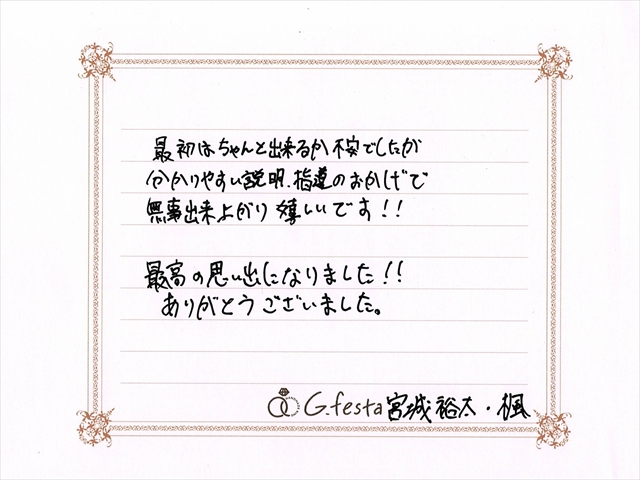 最初はちゃんと出来るか不安でしたが
分かりやすい説明、指導のおかげで
無事出来上がり嬉しいです!!
最高の思い出になりました!!
ありがとうございました。
G.festa 宮城裕太・楓